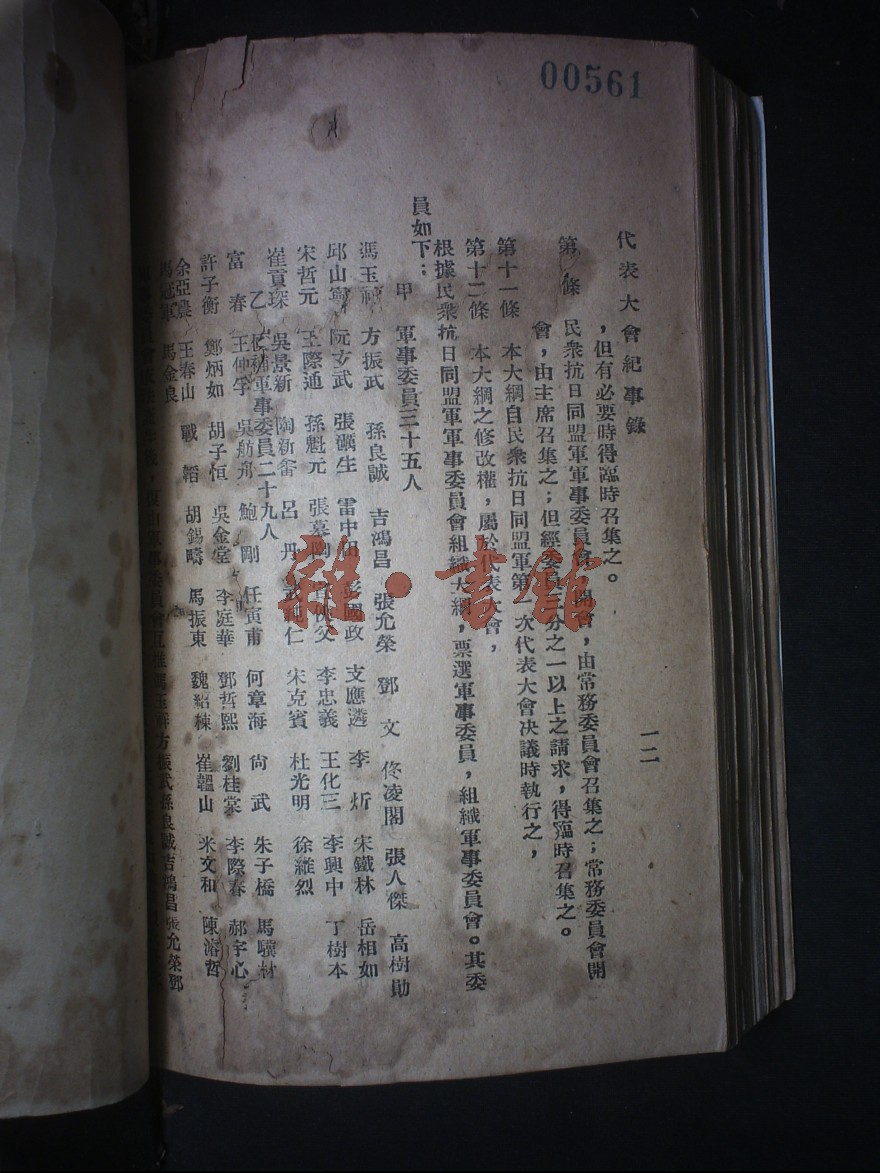 00561
代表大會紀事錄
一二
，但有必要時得臨時召集之。
第 條 民衆抗日同盟軍軍事委員會 開會，由常務委員會召集之；常務委員會開
會，由主席召集之；但經委員三分之一以上之請求，得臨時召集之。
第十一條 本大綱自民衆抗日同盟軍第一次代表大會決議時執行之，
第十二條 本大綱之修改權，屬於代表大會，
根據民衆抗日同盟軍軍事委員會組織大綱，票選軍事委員，組織軍事委員會。其委
員如下：
甲 軍事委員三十五人
馮玉祥 方振武 孫良誠 吉鴻昌 張允榮 鄧文 佟凌閣 張人傑 高樹勛
邱山寧 阮玄武 張礪生 雷中田 彭國政 支應遴 李炘 宋鐵林 岳相如
宋哲元 王際通 孫魁元 張慕陶 李忠義 王化三 李興中 丁樹本
崔貢琛 吳景新 陶新畬 呂丹 仁 宋克賓 杜光明 徐維烈
乙 候補軍事委員二十九人
富春 王仲孚 吳舫舟 鮑剛 任寅甫 何章海 尙武 朱子橋 馬驥材
許子衡 鄭炳如 胡子恒 吳金堂 李庭華 鄧哲熙 劉桂棠 李際春 郝宇心
余亞農 王春山 戰韜 胡錫疇 馬振東 魏紹棟 崔韞山 米文和 陳溶哲
馬冠軍 馬金良
軍事委員會互推馮玉祥方振武孫良誠吉鴻昌張允榮鄧
雜·書館